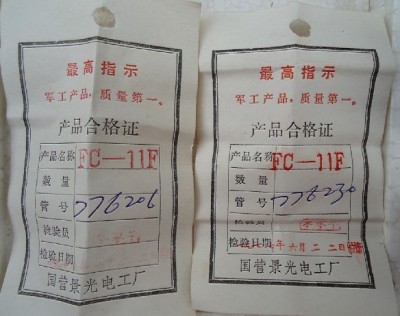 最高指示
军工产品，质量第一。
产品合格证
产品名称 FC—11F
数量
管号 776206
检验员
检验日期
国营景光电工厂
最高指示
军工产品，质量第一。
产品合格证
产品名称 FC—11F
数量
管号 776230
检验员
检验日期 年六月二二日
国营景光电工厂